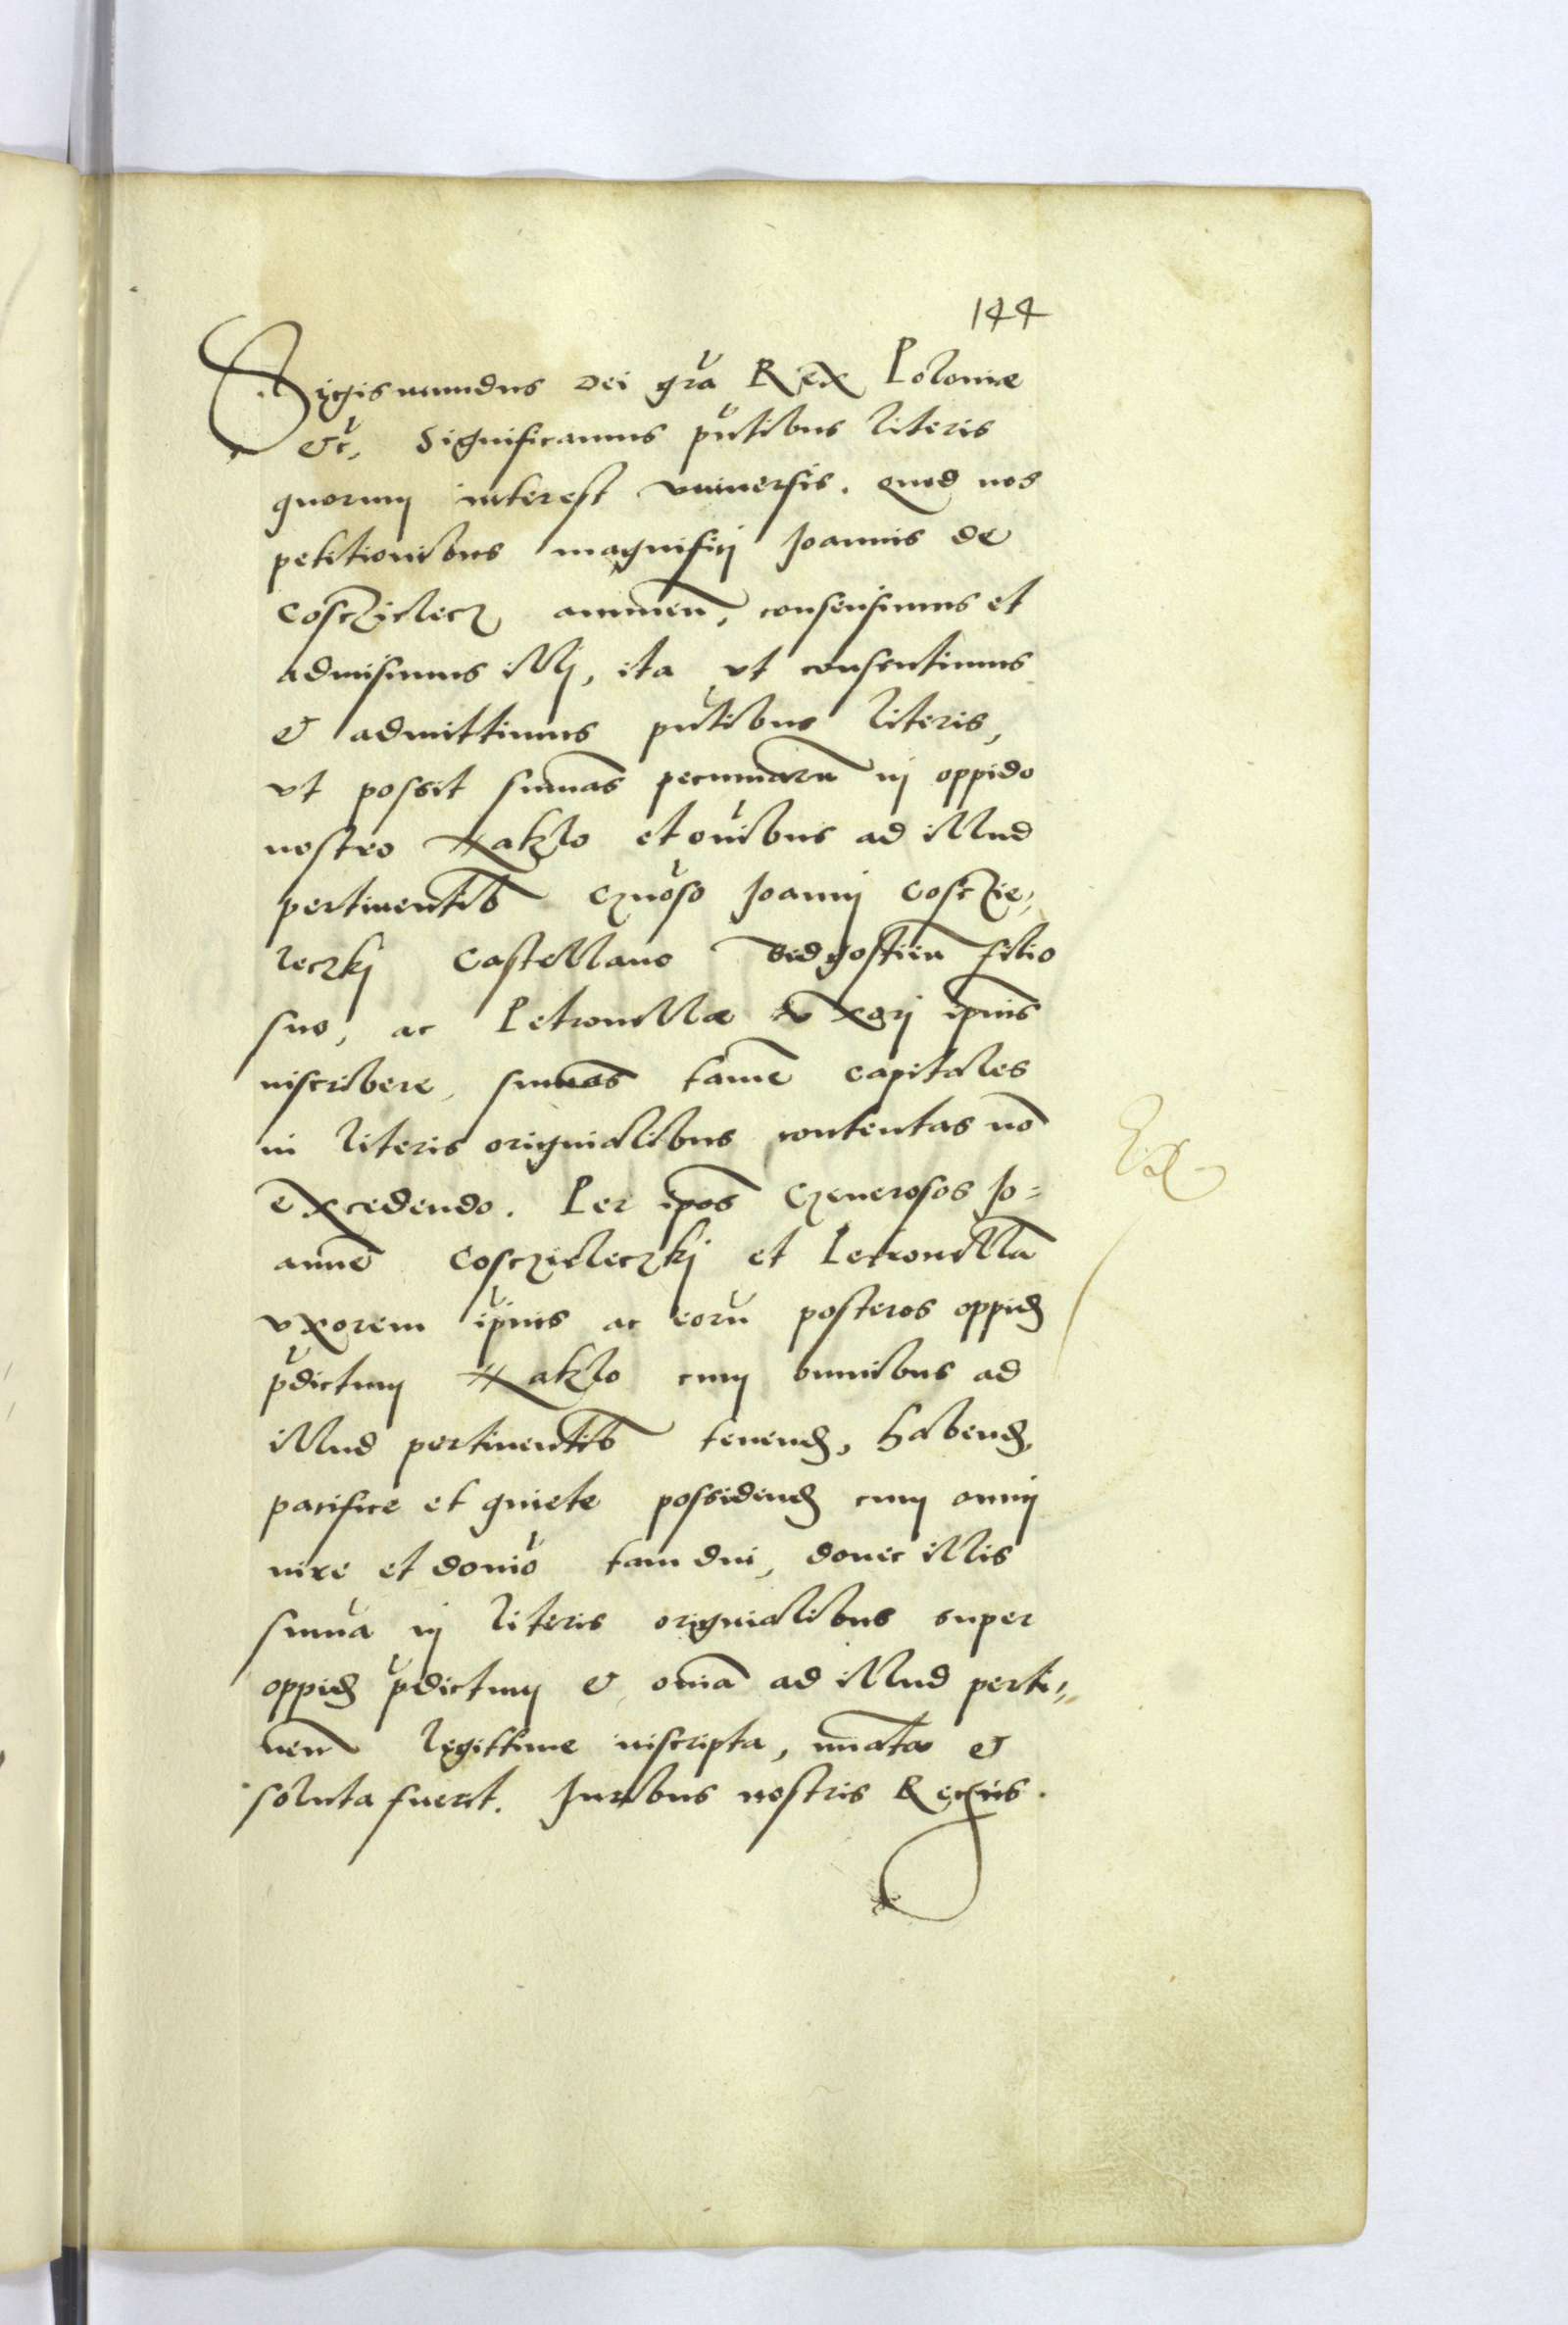 144
Sigismundus Dei gra Rex Poloniæ
etc, Significamus pntibus literis
quorum interest vniuersis. quod nos
petitionibus magnifici Joannis de
Cosczielecz annuen, consensimus et
admisimus illj, ita vt consentimus
& admittimus pntibus literis,
vt possit summas pecuniaru in oppido
nostro Naklo et omibus ad illud
pertinentib Gnoso Joanni Cosczie,
leczkj Castellano Bidgostien filio
suo, ac Petronillæ vxorj ipius
inscribere, summas tame capitales
in literis originalibus contentas no
excedendo. Per ipos Generosos Jo=
anne Cosczieleczkj et Petronilla
vxorem ipius ac eoru posteros oppid
pdictum Naklo cum omnibus ad
illud pertinentib tenend, habend,
pacifice et quiete possidend cum omni
iure et domio tam diu, donec illis
summa in literis originalibus super
oppid pdictum & omia ad illud perti,,
nen legittime inscripta, nuata &
soluta fuerit. Juribus nostris Regiis.
Ex